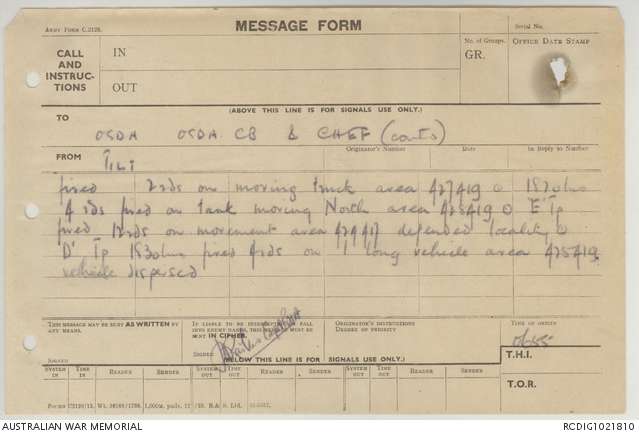 ARMY FORM C.2128.
MESSAGE FORM
Serial No.
CALL AND INSTRUC-TIONS
IN
OUT
No. of Groups.
GR.
OFFICE DATE STAMP
(ABOVE THIS LINE IS FOR SIGNALS USE ONLY.)
TO
OSDA OSDA CB & CHEF (contd)
FROM
TILI
Originator's Number
Date
In Reply to Number
fired 2rds on moving truck area 427419 0 1820hrs
4 rds fired on tank moving North area 425419 0 E Tp
fired 12rds on movement area 429417 defended locality 0
D' Tp 1830hrs fired 4rds on 1 long vehicle area 425419.
vehicle dispersed
THIS MESSAGE MAY BE SENT AS WRITTEN BY ANY MEANS.
IF LIABLE TO BE INTERCEPTED OR FALL INTO ENEMY HANDS, THIS MESSAGE MUST BE SENT IN CIPHER.
ORIGINATOR'S INSTRUCTIONS
DEGREE OF PRIORITY
TIME OF ORIGIN
SIGNED
SIGNED
(BELOW THIS LINE IS FOR SIGNALS USE ONLY.)
T.H.I.
SYSTEM IN
TIME IN
READER
SENDER
SYSTEM OUT
TIME OUT
READER
SENDER
SYSTEM OUT
TIME OUT
READER
SENDER
T.O.R.
AUSTRALIAN WAR MEMORIAL
RCDIG1021810